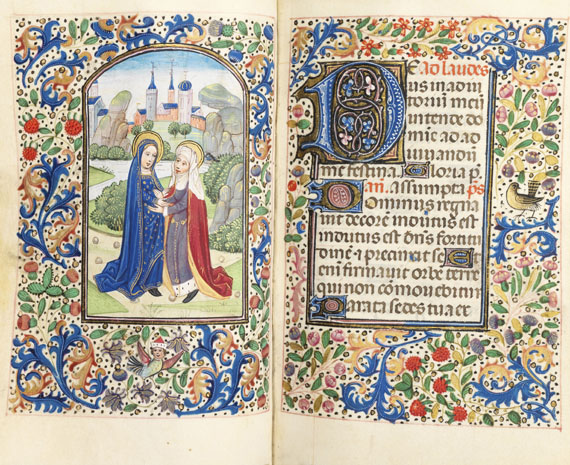 E ad laudes
us in adiu
toriũ meũ
intende do
mie ad ad
iuuandũ
me festina. Gloria p.
añ. assumpta. ps
Dominus regna
uit decorẽ indutus est
indutus est dñs fortitu
dinẽ et precinxit se
eni firmauit orbẽ terre
qui non cõmouebitur
Parata sedes tua ex